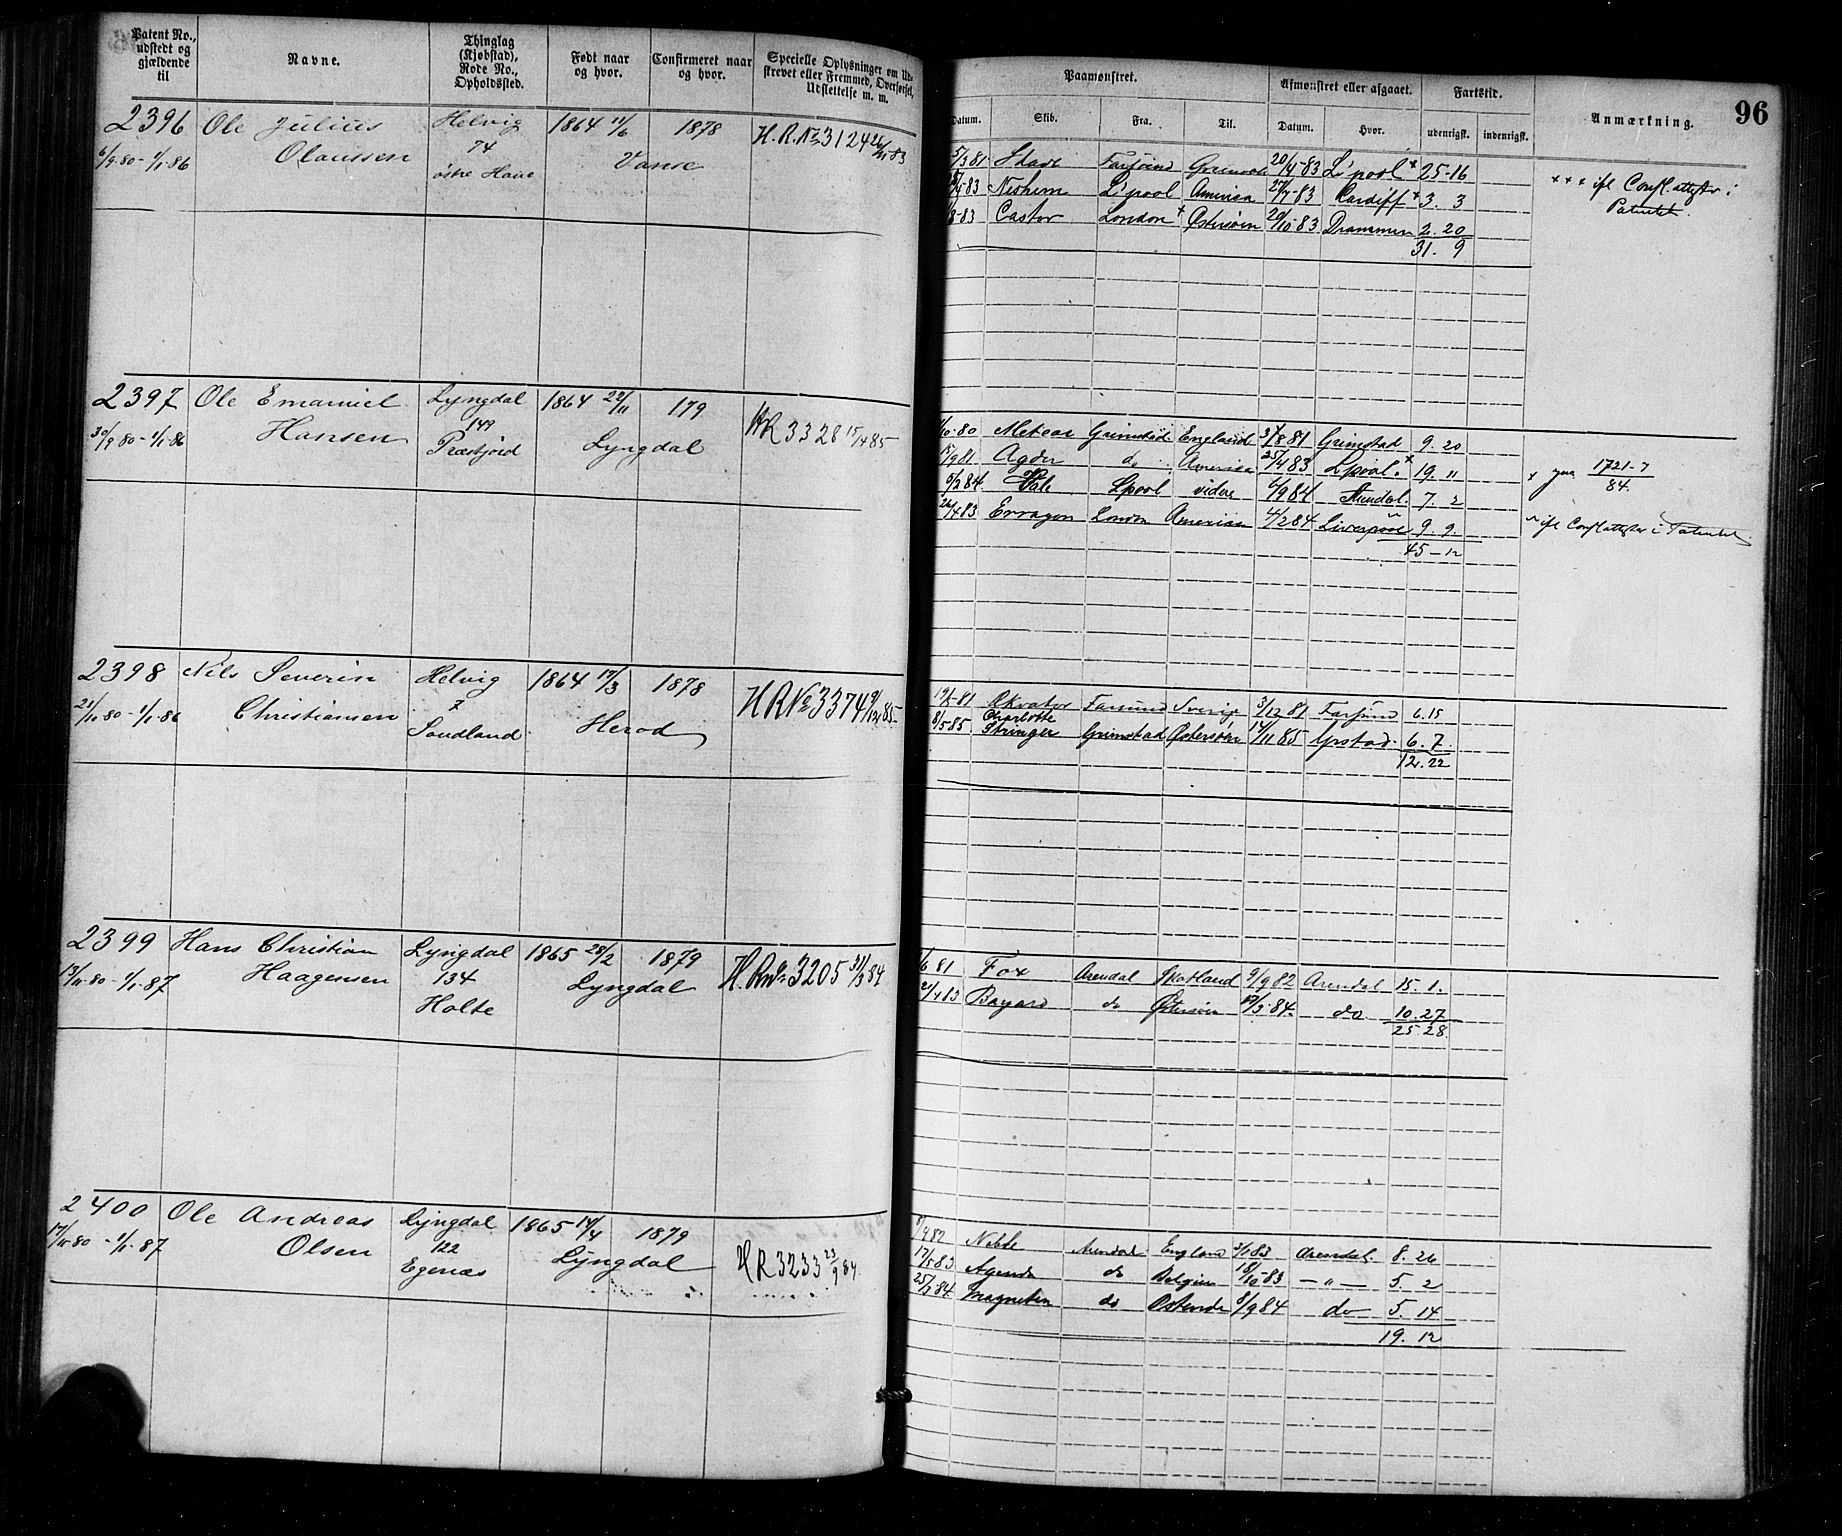 Patent No., udstedt og gjældende til
Navne.
Thinglag (Kjøbstad), Rode No., Opholdssted.
Født naar og hvor.
Confirmeret naar og hvor.
Specielle Oplysninger om Udskrevet eller Fremmed, Overførsel, Udslettelse m. m.
Paamønstret.
Afmønstret eller afgaaet.
Fartstid.
Anmærkning.
96
Datum. Skib. Fra. Til. Datum. Hvor. udenrigsk. indenrigsk.
2396 Ole Julius Helvig 1864 11/6 1878 H.R.No 3124 26/11 83
6/9 80 - 1/1 86 Olaussen 74 Vanse
østre
5/3 81 Farsund 20/4-83 L'pool + 25-16
-83 Neshem L'pool America 27/7-83 Cardiff + 3. 3
8-83 Castor London + Østersøen 20/10-83 Drammen 2. 20
31. 9
+ + + ifl Confl. attester i Patentet.
2397 Ole Emanuel Lyngdal 1864 22/11 179 HR 3328 15/4 85
30/9 80 - 1/1 86 Hansen 149 Lyngdal
Præstfjord
/10-80 Meteor Grimstad England 3/8 81 Grimstad 9. 20
15/9 81 Agder do America 25/4 83 Lpool. + 19. 11
/2 84 Lpool videre 6/9 84 Arendal. 7. 2
26/4 83 Erragon London America 4/2 84 Liverpool 9. 9.
45-12
1721-7
84.
ifl Confl attester i Patentet
2398 Nils Severin Helvig 1864 17/3 1878 H R No 3374 9/12 85
21/10 80 - 1/1 86 Christiansen 7 Herod
Sandland
19/ -81 Ekvator Farsund Sverig 3/12 81 Farsund 6. 15
8/5 85 Charlotte Stringer Grimstad Østersøen 14/11 85 Ystad 6. 7
12. 22
2399 Hans Christian Lyngdal 1865 28/2 1879 H.R No 3205 31/3 84
13/11 80 - 1/1 87 Haagensen 134 Lyngdal
Holte
/6 81 Fox Arendal Skotland 9/9 82 Arendal 15. 1.
21/4 83 Bayard do Østersøen 17/3-84. do 10. 27
25 28.
2400 Ole Andreas Lyngdal 1865 14/4 1879 H R 3233 23/9 84.
17/11 80 - 1/1 87 Olsen 122 Lyngdal
Egenæs
/4 82 Arendal England 3/1 83 Arendal. 8. 26
17/5 83 Agenda do Belgien 18/10-83 — " — 5. 2
25/ 84 Magneten do Ostende 8/9 84 do 5. 14
19. 12